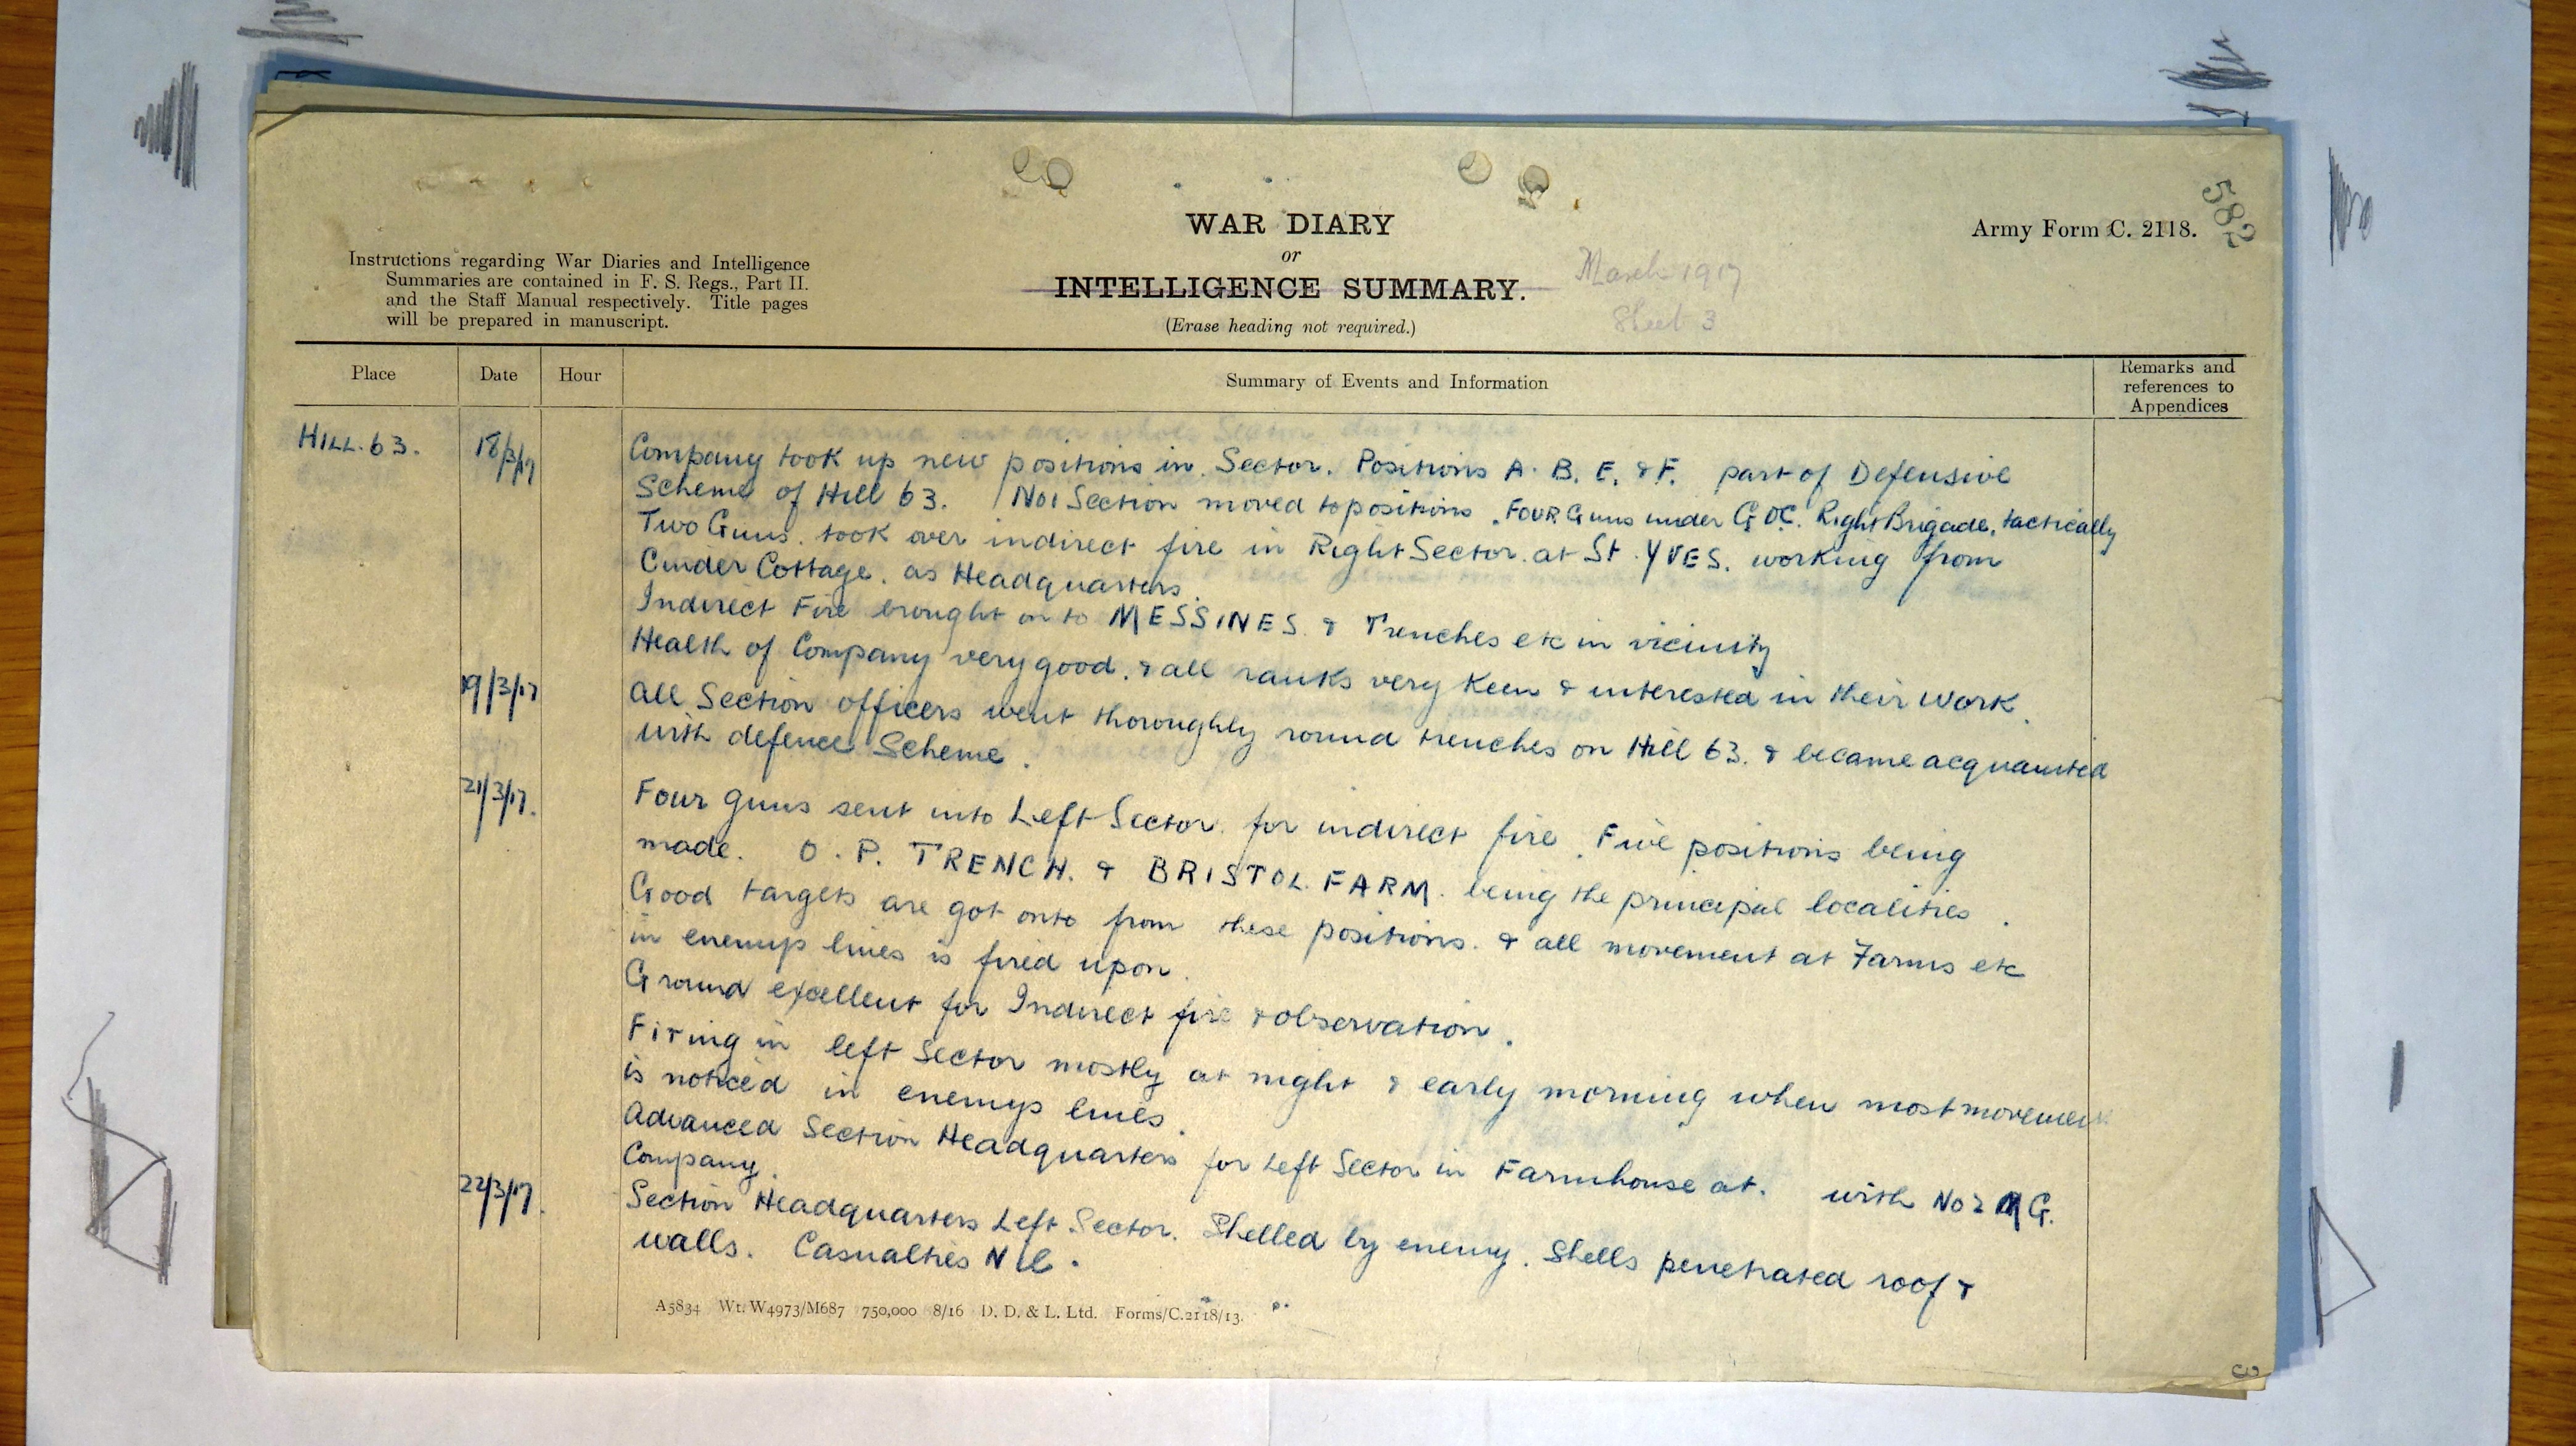 582
WAR DIARY
or
INTELLIGENCE SUMMARY.
(Erase heading not required.)
Army Form C. 2118.
March 1917
Sheet 3
Instructions regarding War Diaries and Intelligence
Summaries are contained in F. S. Regs., Part II.
and the Staff Manual respectively. Title pages
will be prepared in manuscript.
Place Date Hour Summary of Events and Information Remarks and references to Appendices
HILL. 63. 18/3/17 Company took up new positions in Sector. Positions A. B. E. & F. part of Defensive
Scheme of Hill 63. No1 Section moved to positions. FOUR Guns under G.O.C. Right Brigade, tactically
Two Guns. took over indirect fire in Right Sector. at St. YVES. working from
Cinder Cottage. as Headquarters.
Indirect Fire brought on to MESSINES. & Trenches etc in vicinity
Health of Company very good. & all ranks very Keen & interested in their work.
19/3/17 All Section officers went thoroughly round trenches on Hill 63. & became acquainted
with defence Scheme.
21/3/17. Four guns sent into Left Sector. for indirect fire. Five positions being
made. O. P. TRENCH. & BRISTOL. FARM. being the principal localities.
Good targets are got onto from these positions. & all movement at Farms etc
in enemys lines is fired upon.
Ground excellent for Indirect fire & observation.
Firing in left Sector mostly at night & early morning when most movement
is noticed in enemys lines.
Advanced Section Headquarters for Left Sector in Farmhouse at. with No 2 MG.
Company.
22/3/17. Section Headquarters Left Sector. Shelled by enemy. Shells penetrated roof &
walls. Casualties Nil.
A5834 Wt. W4973/M687 750,000 8/16 D. D. & L. Ltd. Forms/C.2118/13.